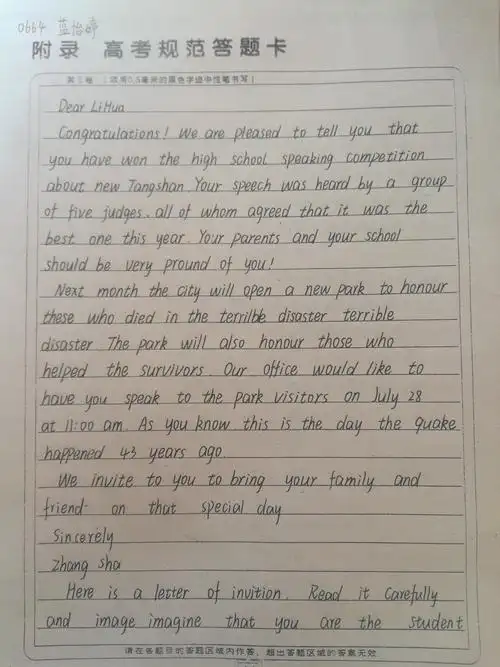 0664 蓝怡婷
附录 高考规范答题卡
第Ⅱ卷 (请用0.5毫米的黑色字迹中性笔书写)
Dear LiHua
Congratulations! We are pleased to tell you that
you have won the high school speaking competition
about new Tangshan. Your speech was heard by a group
of five judges, all of whom agreed that it was the
best one this year. Your parents and your school
should be very pround of you!
Next month the city will open a new park to honour
these who died in the terrilbe disaster terrible
disaster. The park will also honour those who
helped the survivors. Our office would like to
have you speak to the park visitors on July 28
at 11:00 am. As you know this is the day the quake
happened 43 years ago.
We invite to you to bring your family and
friend on that special day
Sincerely
Zhang sha
Here is a letter of invition. Read it carefully
and image imagine that you are the student
请在各题目的答题区域内作答，超出答题区域的答案无效